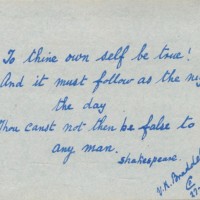 To thine own self be true!
And it must follow as the
the day
Thou canst not then be false to
any man.
Shakespeare.
V.R.